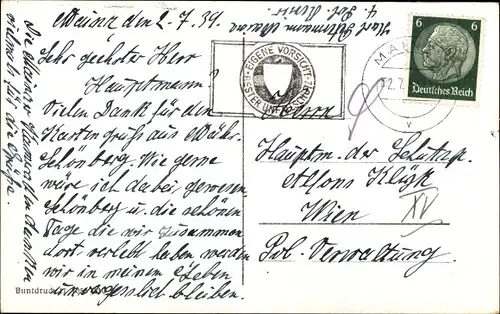 Mainz den 2.7.39.
Sehr geehrter Herr
Hauptmann!
Vielen Dank für den
Kartengruß aus Mähr.
Schönberg. Wie gerne
wäre ich dabei gewesen.
Schönberg u. die schönen
Tage die wir zusammen
dort verlebt haben werden
wir in meinem Leben
unvergesslich bleiben.
Die Mainzer Kameraden danken
vielmals für die Grüße.
Karl Mainz
4
EIGENE VORSICHT
BESTER UNFALLSCHUTZ
MAI
2.7.
6 6
Deutsches Reich
Herrn
Hauptm. der Schutzp.
Alfons
Wien
XV
Pol. Verwaltung.
Buntdruck